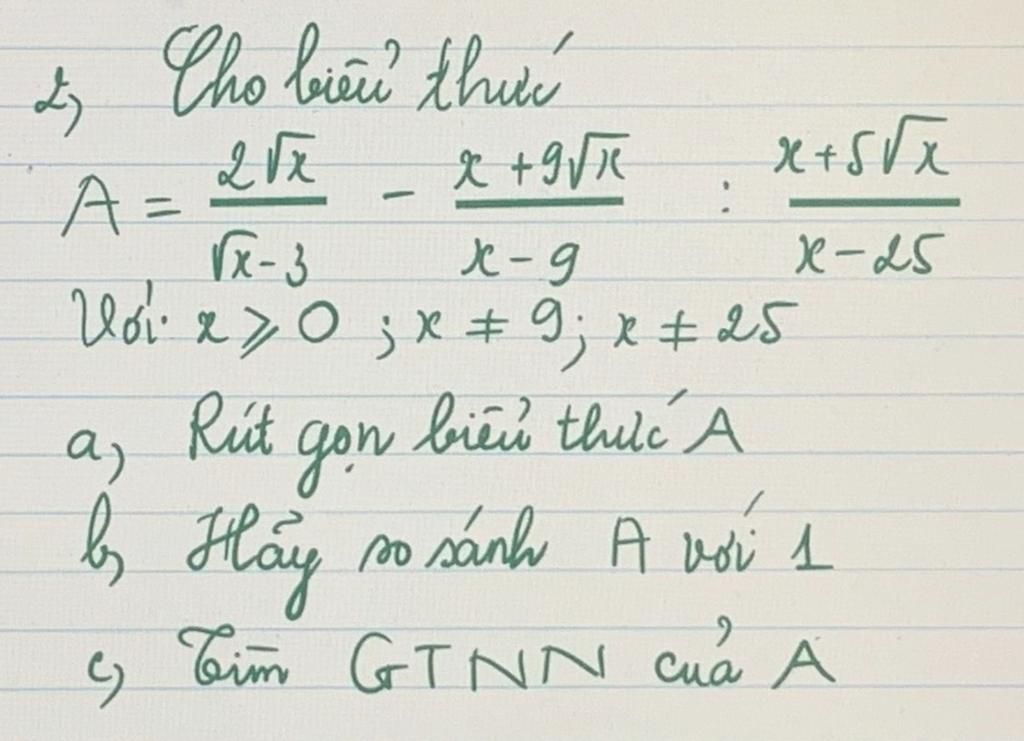 2, Cho biểu thức
A = \frac{2\sqrt{x}}{\sqrt{x}-3} - \frac{x+9\sqrt{x}}{x-9} : \frac{x+5\sqrt{x}}{x-25}
Với x ⩾ 0 ; x ≠ 9; x ≠ 25
a, Rút gọn biểu thức A
b, Hãy so sánh A với 1
c, Tìm GTNN của A